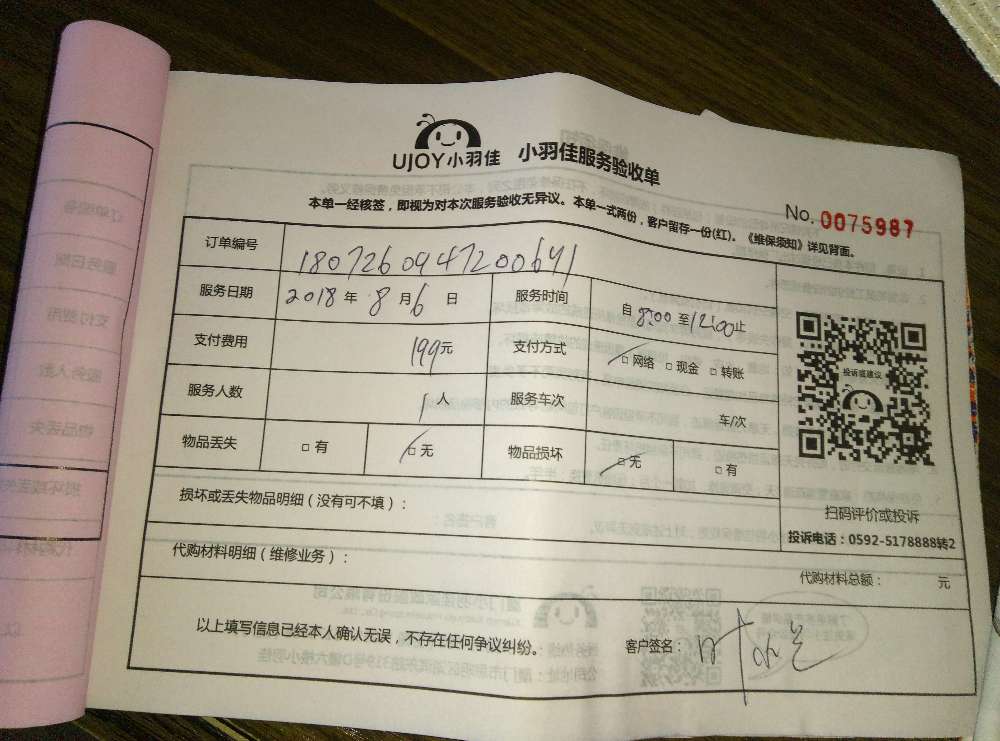 UJOY小羽佳 小羽佳服务验收单
本单一经核签，即视为对本次服务验收无异议。本单一式两份，客户留存一份(红)。《维保须知》详见背面。
No. 0075987
订单编号 1807260947200641
服务日期 2018 年 8 月 6 日 服务时间 自 8:00 至 12:00 止
支付费用 199元 支付方式 □ 网络 □ 现金 □ 转账
服务人数 1 人 服务车次 车/次
物品丢失 □ 有 □ 无 物品损坏 □ 无 □ 有
投诉或建议
扫码评价或投诉
投诉电话：0592-5178888转2
损坏或丢失物品明细（没有可不填）：
代购材料明细（维修业务）：
代购材料总额： 元
以上填写信息已经本人确认无误，不存在任何争议纠纷。 客户签名：